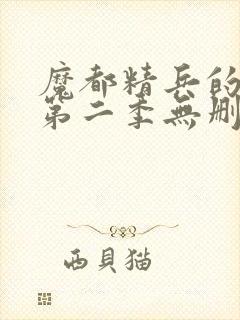 魔都精兵的
第二季無刪
西貝猫